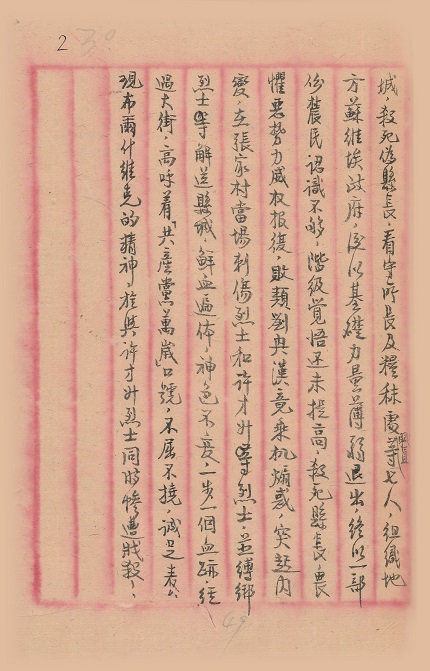 2
城，殺死偽縣長，看守所長及糧秣處等職員七人，組織地
方蘇維埃政府，後以基礎力量薄弱退出，終以一部
份農民認識不够，階級覺悟还未提高，殺死縣長，畏
懼惡勢力威权报復，敗類劉典漢竟乘机煽惑，突起内
變，在張家村當場刺傷烈士和許才升等烈士，並縛綁
烈士等解送縣城，鮮血遍体，神色不变，一步一個血跡，經
過大街，高呼着「共產黨萬歲」口號，不屈不撓，誠足表
現布爾什維克的精神，於與許才升烈士同時慘遭戕殺，